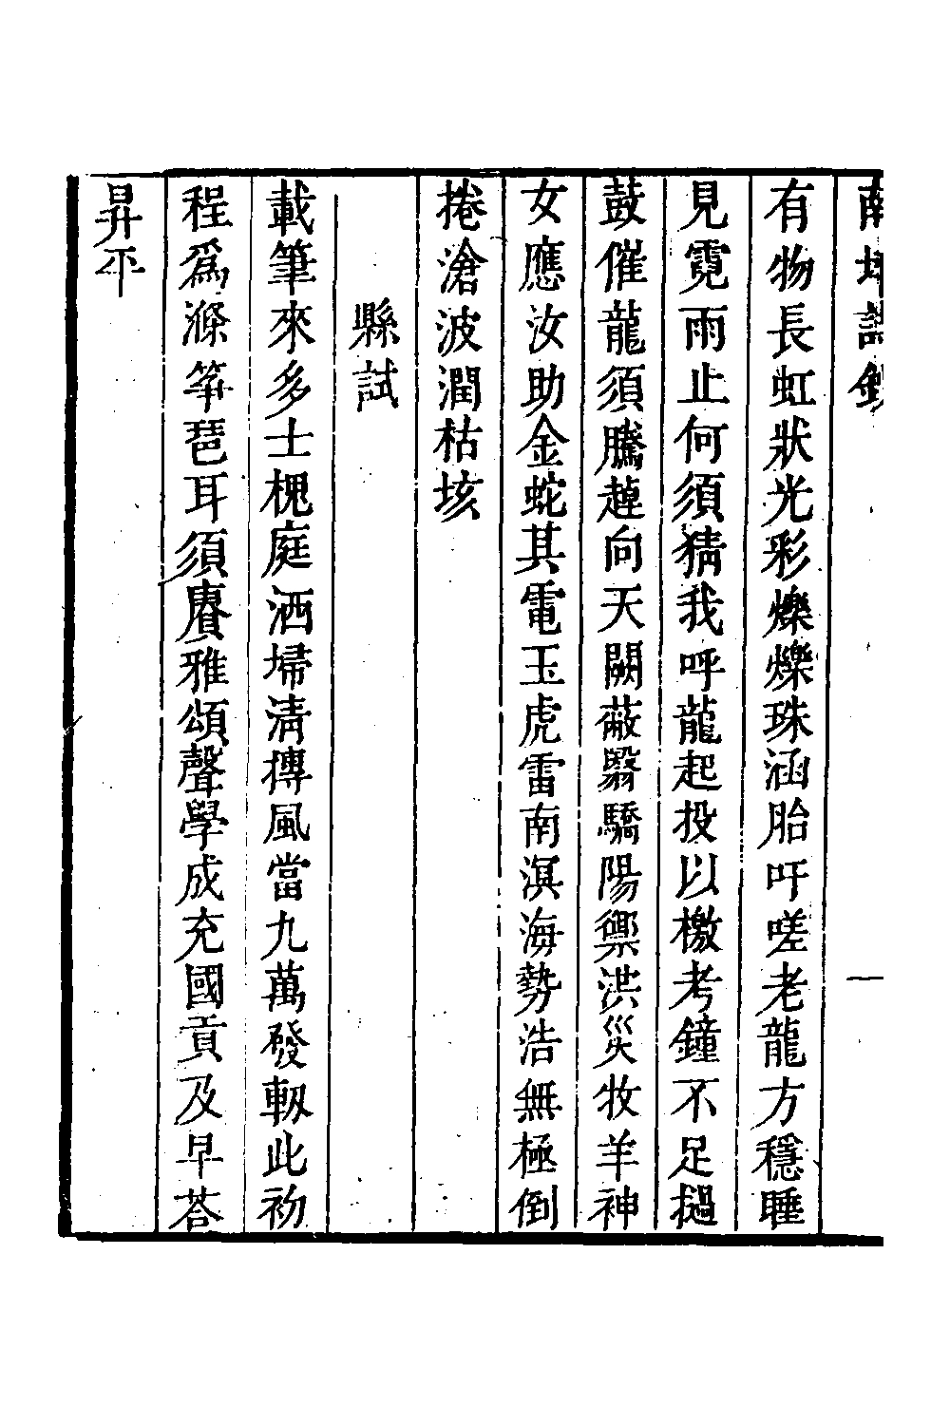 南詩鈔 一
有物長虹狀光彩爍爍珠涵胎吁嗟老龍方穩睡
見霓雨止何須猜我呼龍起投以檄考鐘不足撾
鼓催龍須騰趠向天闕蔽翳驕陽禦洪災牧羊神
女應汝助金蛇其電玉虎雷南溟海勢浩無極倒
捲滄波潤枯垓
縣試
載筆來多士槐庭洒埽清摶風當九萬發軔此初
程爲滌箏琶耳須賡雅頌聲學成充國貢及早荅
昇平